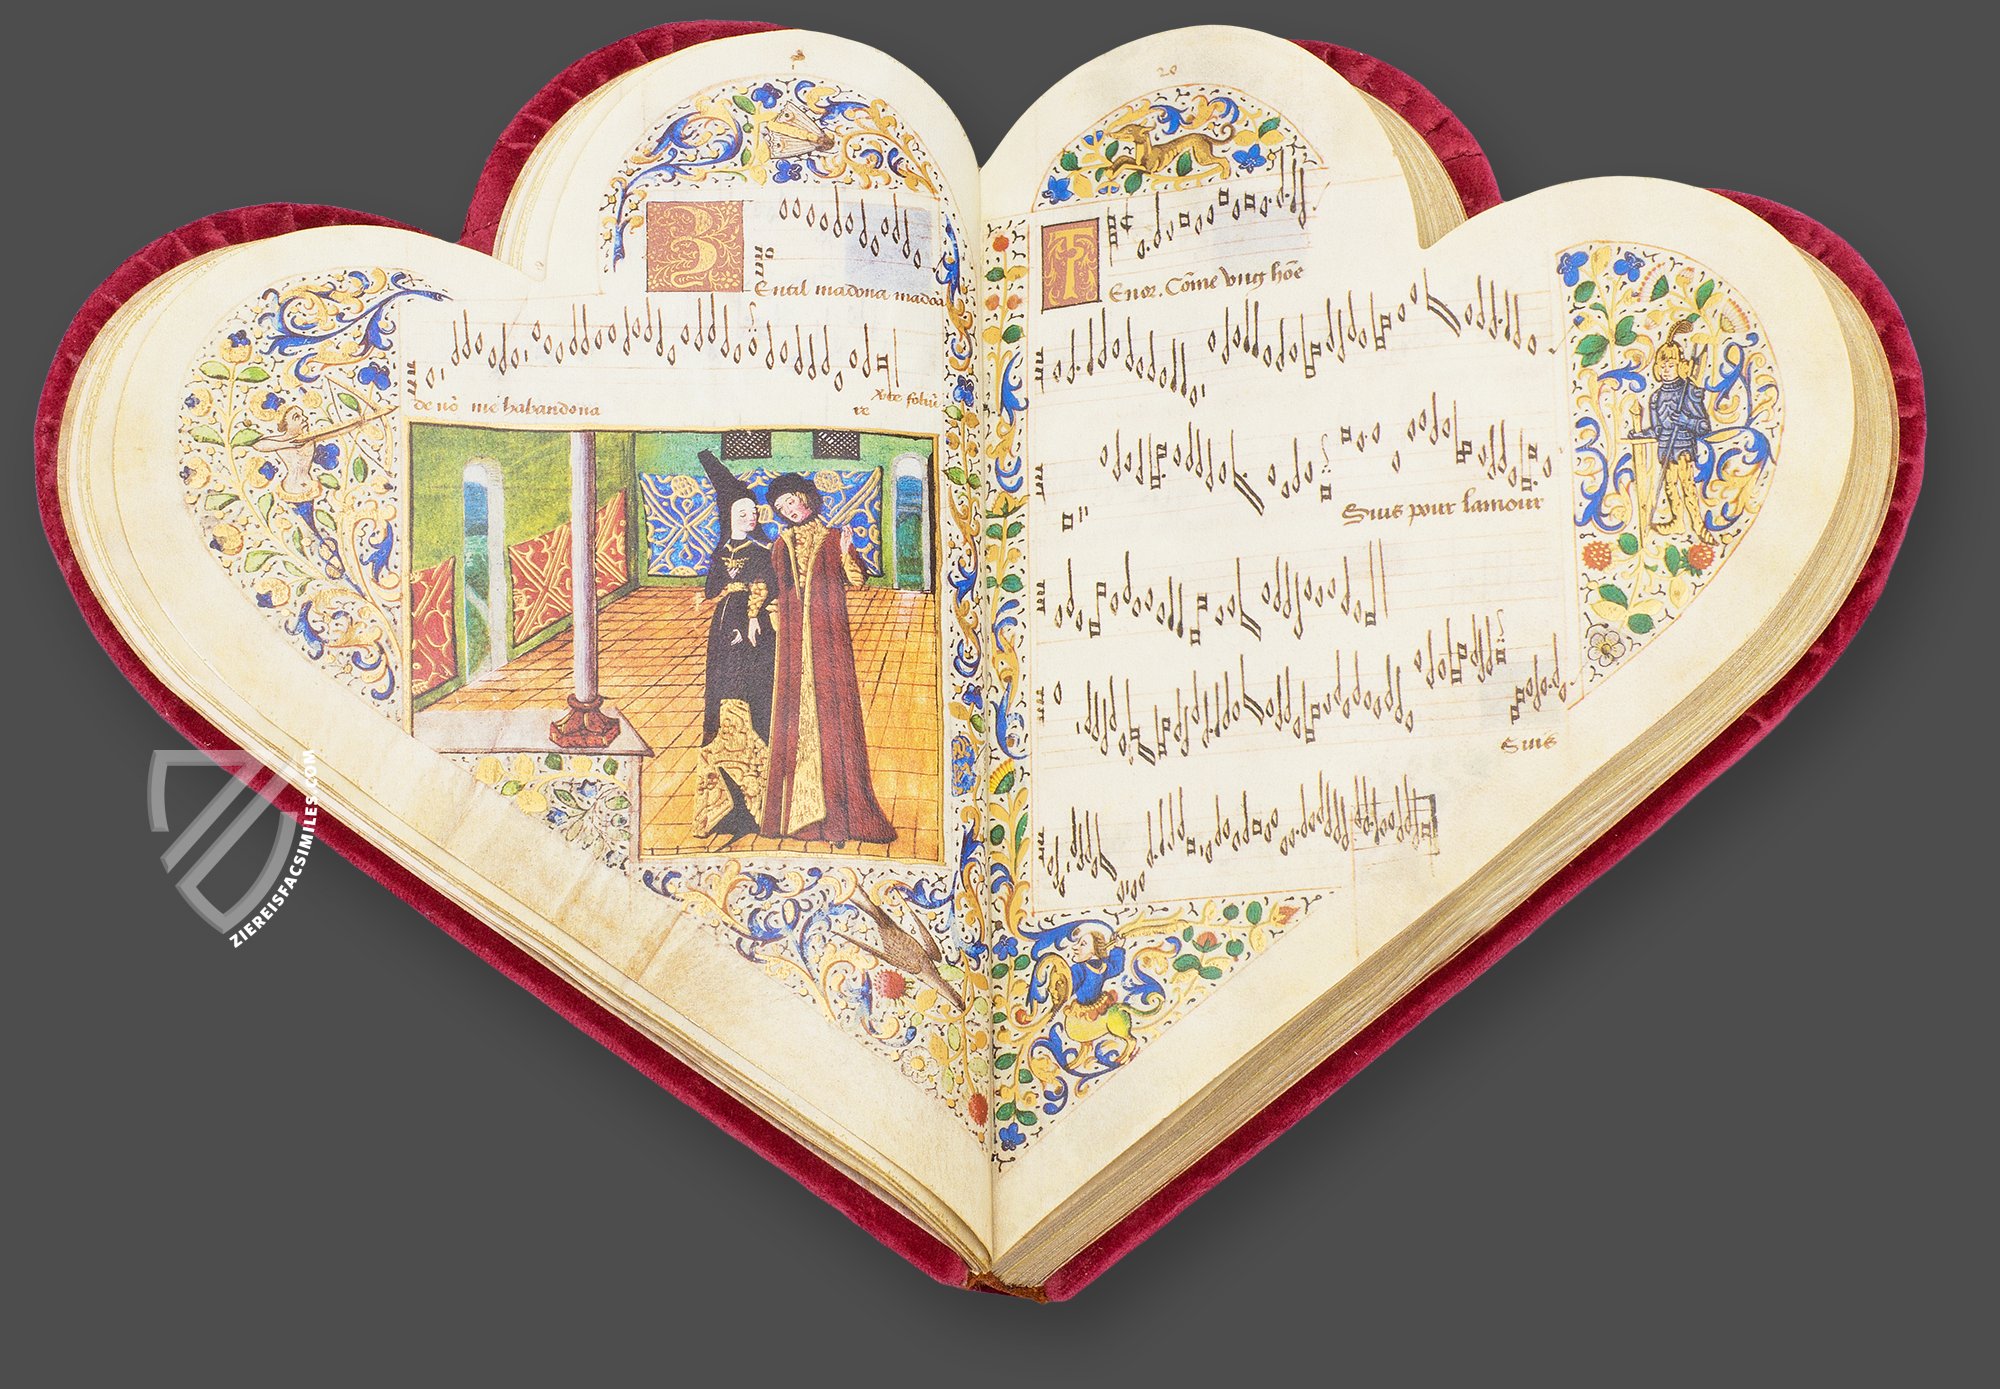 Zentil madona madōa
de nō me habandona
re
Xpe folīu
20
Tenor. Cōme vng hōe
Suis pour lamour
Suis
ZIEREISFACSIMILES.COM